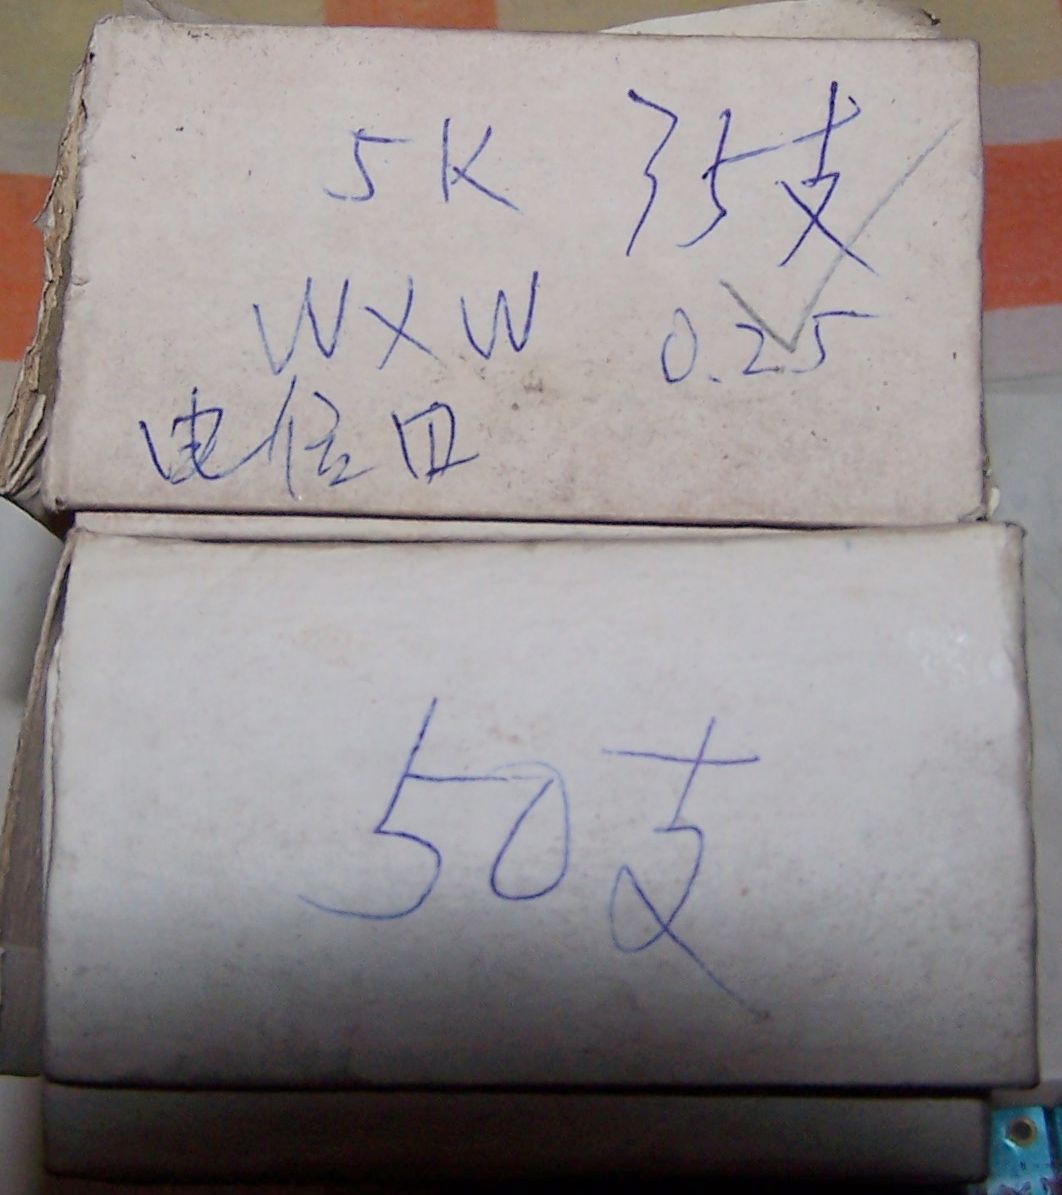 5K 35支
WXW 0.25
电位田
50支